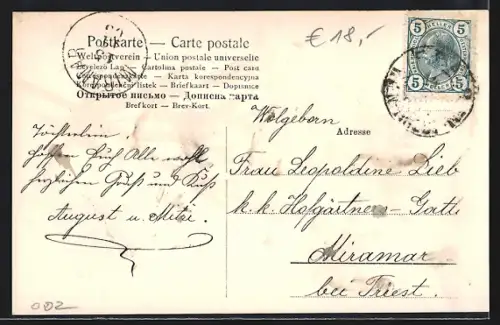 € 18,-
Postkarte — Carte postale
Weltpostverein — Union postale universelle
Levelező Lap — Cartolina postale — Post card
Correspondenzkarte — Karta korespondencyjna
Korespondenční lístek — Briefkaart — Dopisnice
Открытое письмо — Дописна карта
Brefkort — Brev-Kort.
5 5
5 5
Wolgeborn
Adresse
Frau Leopoldine Lieb
k. k. Hofgärtners-Gatti
Miramar
bei Triest.
Euch Alle
herzlichen Gruß und Kuß
August u. Mitzi.
002